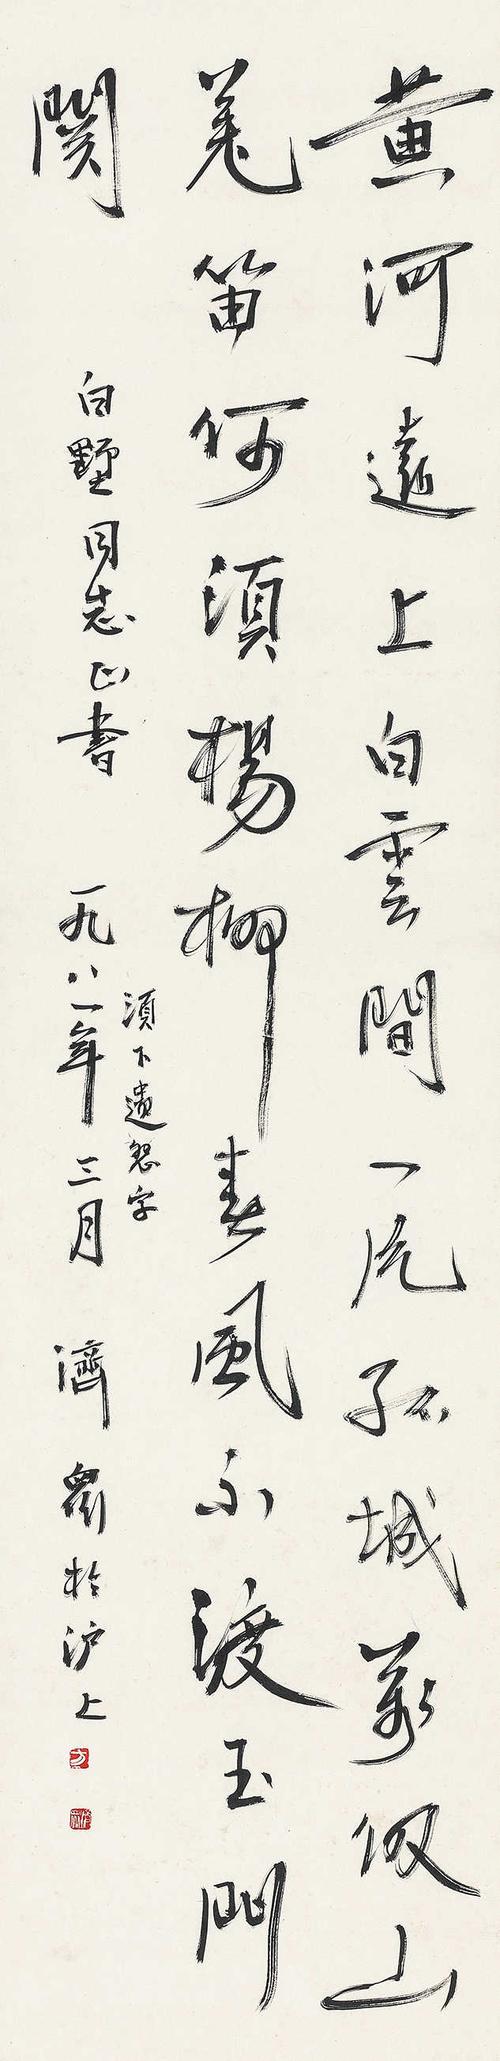 黄河遠上白雲間一片孤城萬仞山
羌笛何須楊柳春風不渡玉門
関
白墅同志正書
一九八一年三月 濟眾於沪上
須下遺怨字